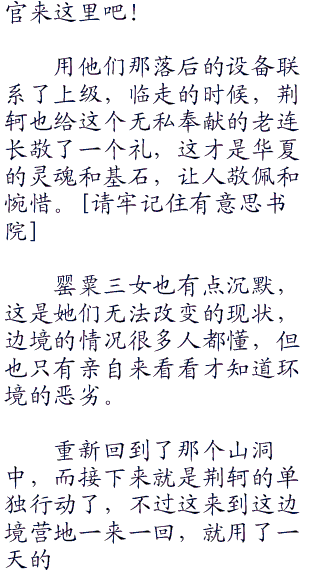 官来这里吧！
用他们那落后的设备联
系了上级，临走的时候，荆
轲也给这个无私奉献的老连
长敬了一个礼，这才是华夏
的灵魂和基石，让人敬佩和
惋惜。[请牢记住有意思书
院]
罂粟三女也有点沉默，
这是她们无法改变的现状，
边境的情况很多人都懂，但
也只有亲自来看看才知道环
境的恶劣。
重新回到了那个山洞
中，而接下来就是荆轲的单
独行动了，不过这来到这边
境营地一来一回，就用了一
天的